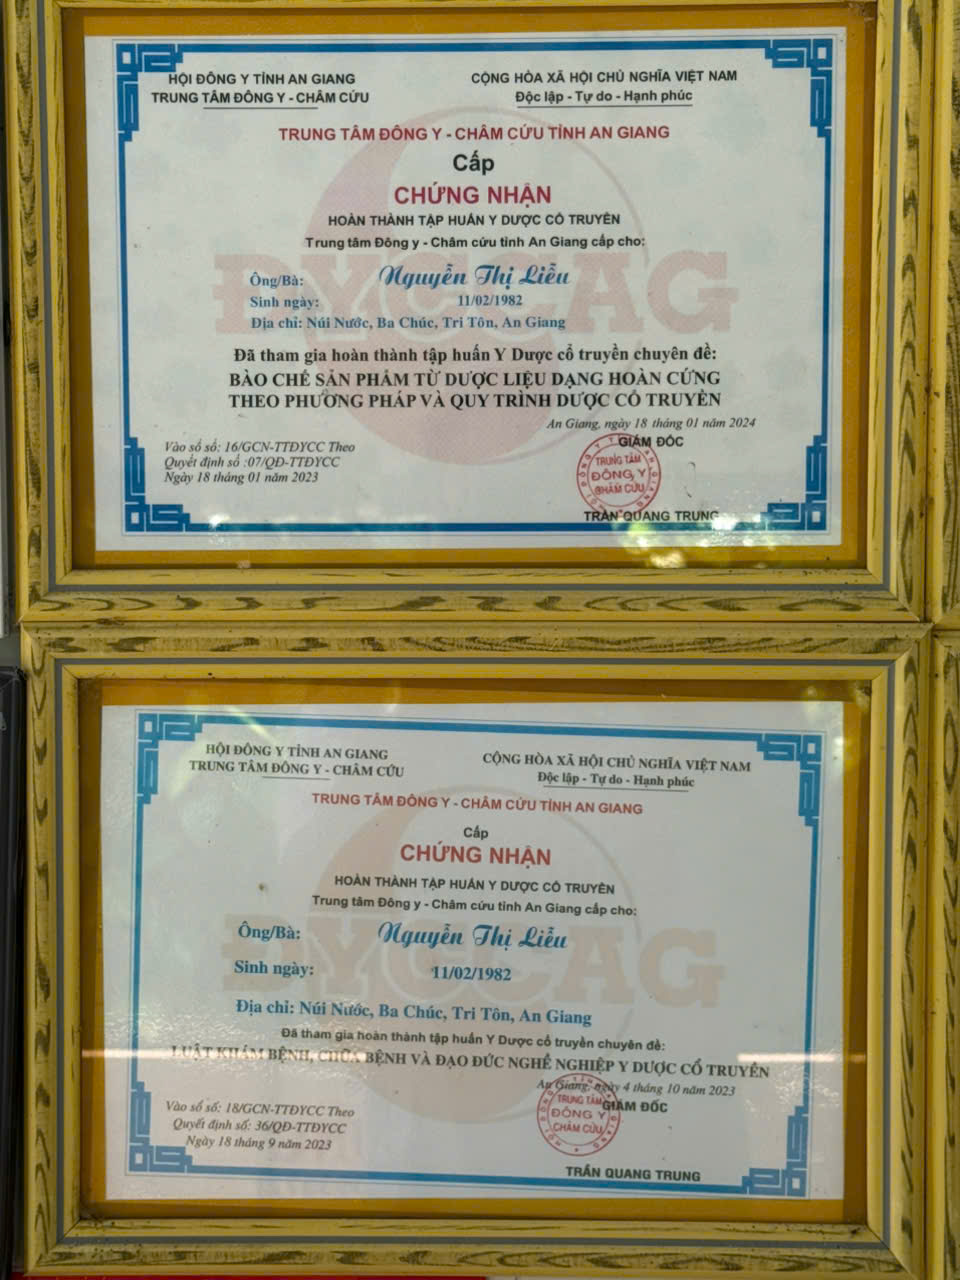 HỘI ĐÔNG Y TỈNH AN GIANG
TRUNG TÂM ĐÔNG Y - CHÂM CỨU
CỘNG HÒA XÃ HỘI CHỦ NGHĨA VIỆT NAM
Độc lập - Tự do - Hạnh phúc
TRUNG TÂM ĐÔNG Y - CHÂM CỨU TỈNH AN GIANG
Cấp
CHỨNG NHẬN
HOÀN THÀNH TẬP HUẤN Y DƯỢC CỔ TRUYỀN
Trung tâm Đông y - Châm cứu tỉnh An Giang cấp cho:
ĐYCCAG
Ông/Bà: Nguyễn Thị Liễu
Sinh ngày: 11/02/1982
Địa chỉ: Núi Nước, Ba Chúc, Tri Tôn, An Giang
Đã tham gia hoàn thành tập huấn Y Dược cổ truyền chuyên đề:
BÀO CHẾ SẢN PHẨM TỪ DƯỢC LIỆU DẠNG HOÀN CỨNG
THEO PHƯƠNG PHÁP VÀ QUY TRÌNH DƯỢC CỔ TRUYỀN
An Giang, ngày 18 tháng 01 năm 2024
GIÁM ĐỐC
Vào sổ số: 16/GCN-TTĐYCC Theo
Quyết định số :07/QĐ-TTĐYCC
Ngày 18 tháng 01 năm 2023
TRUNG TÂM
ĐÔNG Y
CHÂM CỨU
TRẦN QUANG TRUNG
HỘI ĐÔNG Y TỈNH AN GIANG
TRUNG TÂM ĐÔNG Y - CHÂM CỨU
CỘNG HÒA XÃ HỘI CHỦ NGHĨA VIỆT NAM
Độc lập - Tự do - Hạnh phúc
TRUNG TÂM ĐÔNG Y - CHÂM CỨU TỈNH AN GIANG
Cấp
CHỨNG NHẬN
HOÀN THÀNH TẬP HUẤN Y DƯỢC CỔ TRUYỀN
Trung tâm Đông y - Châm cứu tỉnh An Giang cấp cho:
ĐYCCAG
Ông/Bà: Nguyễn Thị Liễu
Sinh ngày: 11/02/1982
Địa chỉ: Núi Nước, Ba Chúc, Tri Tôn, An Giang
Đã tham gia hoàn thành tập huấn Y Dược cổ truyền chuyên đề:
LUẬT KHÁM BỆNH, CHỮA BỆNH VÀ ĐẠO ĐỨC NGHỀ NGHIỆP Y DƯỢC CỔ TRUYỀN
An Giang, ngày 4 tháng 10 năm 2023
GIÁM ĐỐC
Vào sổ số: 18/GCN-TTĐYCC Theo
Quyết định số: 36/QĐ-TTĐYCC
Ngày 18 tháng 9 năm 2023
TRUNG TÂM
ĐÔNG Y
CHÂM CỨU
TRẦN QUANG TRUNG